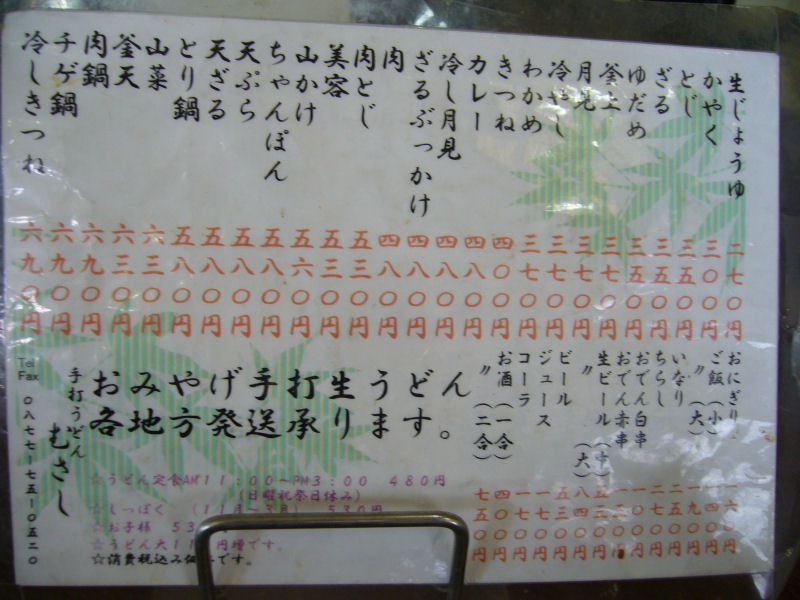 生じょうゆ 二七〇円
かやく 三〇〇円
とじ 三五〇円
ざる 三五〇円
ゆだめ 三五〇円
釜上 三七〇円
月見 三七〇円
冷やし 三七〇円
わかめ 三七〇円
きつね 四〇〇円
カレー 四八〇円
冷し月見 四八〇円
ざるぶっかけ 四八〇円
肉 四八〇円
肉とじ 五三〇円
美容 五三〇円
山かけ 五六〇円
ちゃんぽん 五八〇円
天ぷら 五八〇円
天ざる 五八〇円
とり鍋 五八〇円
山菜 六三〇円
釜天 六三〇円
肉鍋 六九〇円
チゲ鍋 六九〇円
冷しきつね 六九〇円
おにぎり 一六〇円
ご飯(小) 一四〇円
〃(大) 一九〇円
いなり 二五〇円
ちらし 二七〇円
おでん白串 一〇〇円
おでん赤串 一五〇円
生ビール(中) 五三〇円
〃(大) 八四〇円
ビール 五三〇円
ジュース 一五〇円
コーラ 一五〇円
お酒(一合) 四〇〇円
〃(二合) 七五〇円
おみやげ手打生うどん
各地方発送承ります。
手打うどん むさし
Tel
Fax 〇八七七-七五-〇五二〇
☆うどん定食AM11:00〜PM3:00 480円
(日曜祝祭日休み)
☆しっぽく (11月〜3月) 530円
☆お子様 53
☆うどん大11 円増です。
☆消費税込み価 です。